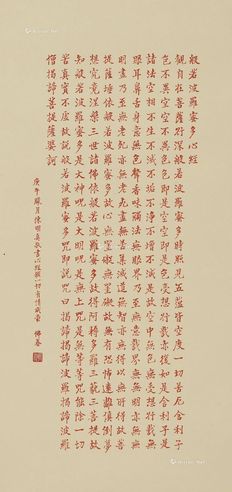 般若波羅蜜多心經
觀自在菩薩行深般若波羅蜜多時照見五蘊皆空度一切苦厄舍利子
色不異空空不異色色即是空空即是色受想行識亦復如是舍利子是
諸法空相不生不滅不垢不淨不增不減是故空中無色無受想行識無
眼耳鼻舌身意無色聲香味觸法無眼界乃至無意識界無無明亦無無
明盡乃至無老死亦無老死盡無苦集滅道無智亦無得以無所得故菩
提薩埵依般若波羅蜜多故心無罣礙無罣礙故無有恐怖遠離顛倒夢
想究竟涅槃三世諸佛依般若波羅蜜多故得阿耨多羅三藐三菩提故
知般若波羅蜜多是大神咒是大明咒是無上咒是無等等咒能除一切
苦真實不虛故說般若波羅蜜多咒即說咒曰揭諦揭諦波羅揭諦波羅
僧揭諦菩提薩婆訶
庚午臘月陳明敬書心經願一切有情咸佛眷